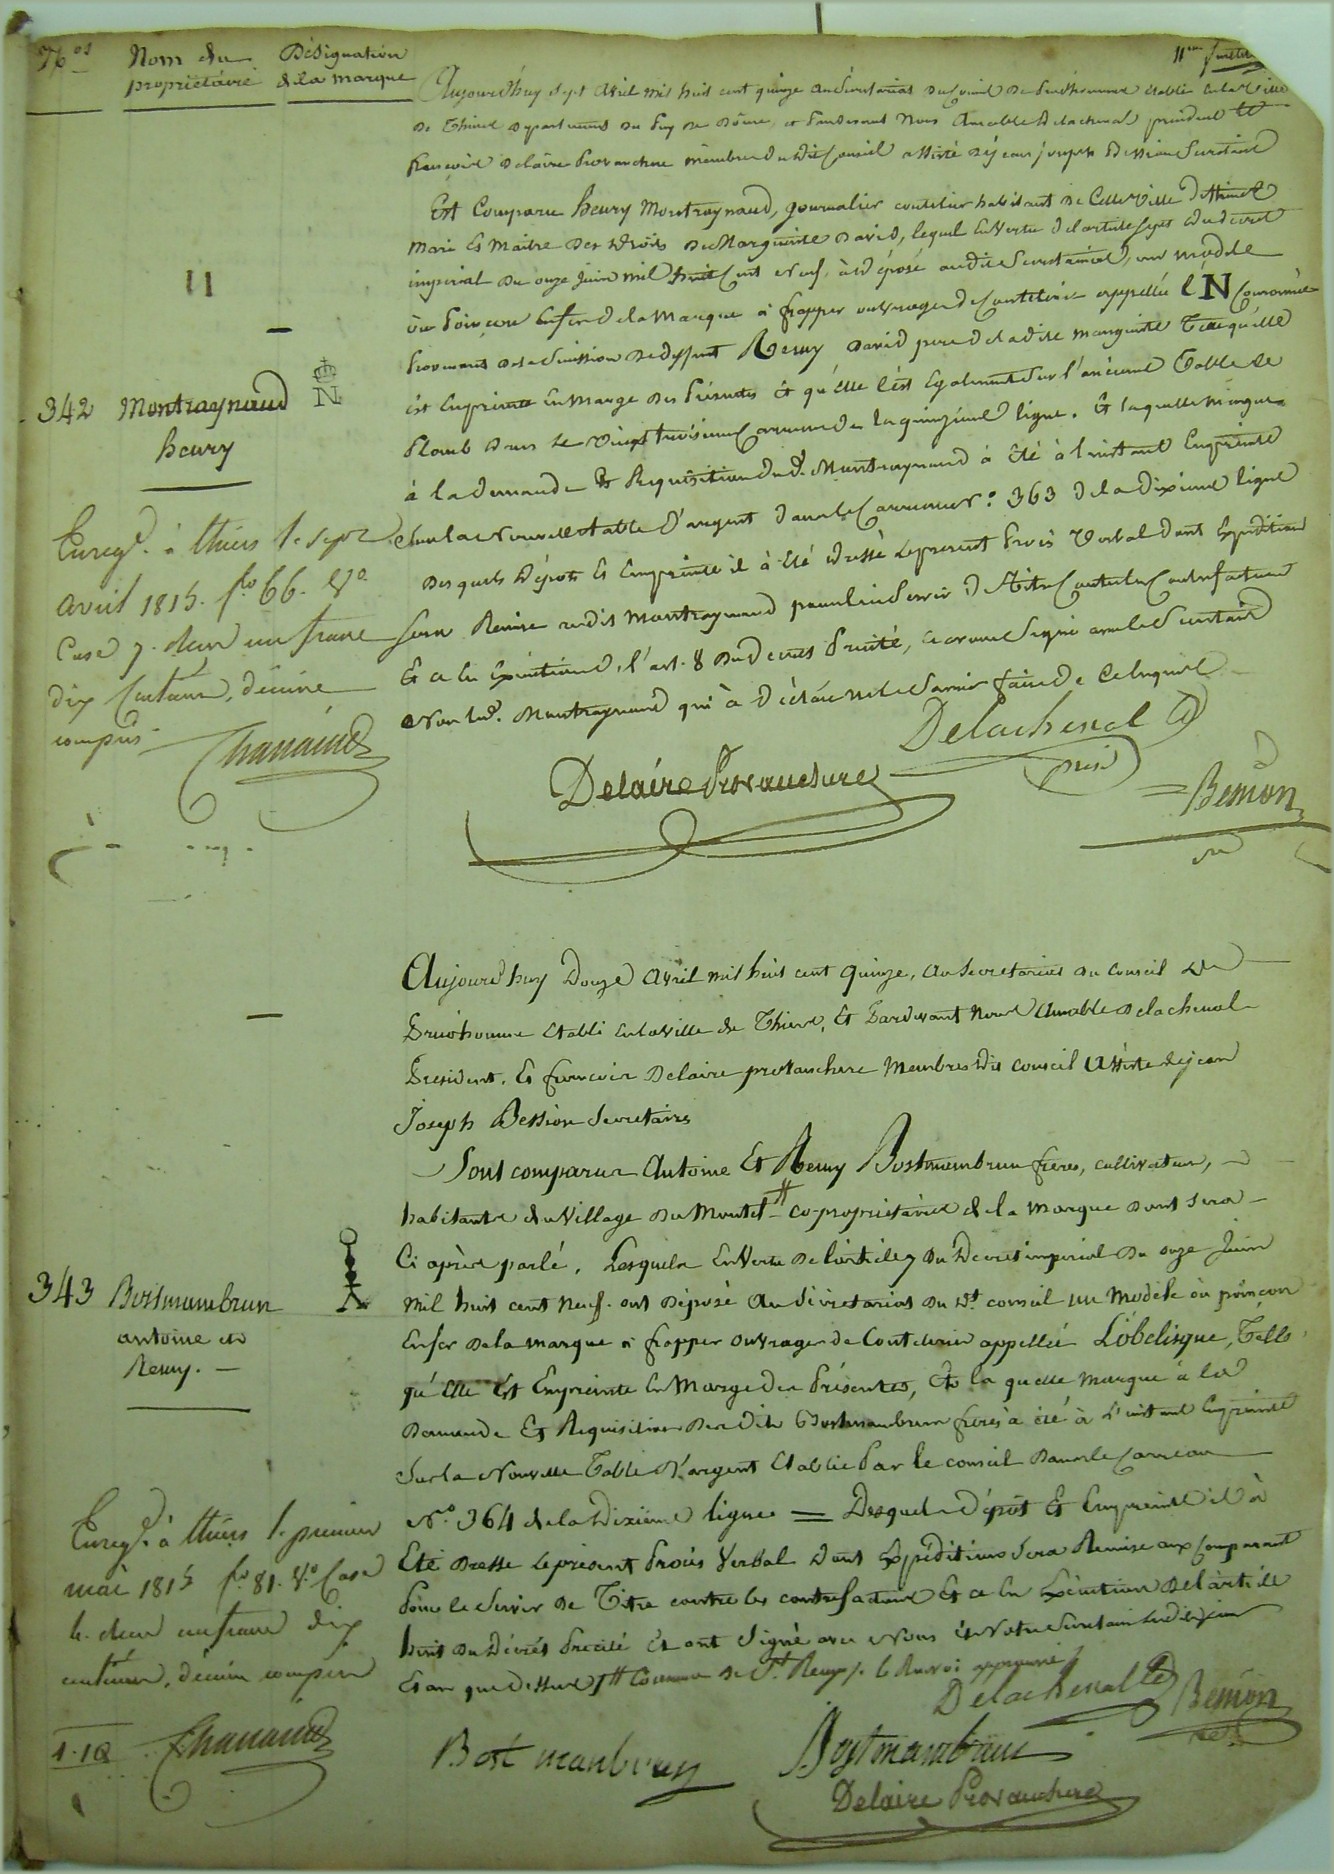 Nos
Nom du propriétaire
Désignation de la marque
11me feuillet
Aujourd'huy sept Avril mil huit cent quinze au Secretariat du Conseil de Prud'hommes établi en la Ville
de Thiers departement du Puy de Dôme, et Pardevant Nous Amable Delachenal president et
François Delaire Provanchere membre dudit Conseil assisté de jean joseph Bession Secretaire
Est Comparu henry Montraynaud, journalier coutelier habitant de Cette Ville de thiers
Mari Et Maitre des droits de Marguerite David, lequel En Vertu de l'article sept du decret
imperial du onze juin mil huit Cent Neuf, à déposé audit Secretariat, un modèle
ou Poinçon En fer de la Marque à frapper ouvrages de Coutelerie appellée l'N Couronnée
Provenant de la Succession de deffunt Remy David pere de ladite marguerite Telle qu'elle
Est Empreinte En Marge des Présentes et qu'elle l'est Egalement sur l'ancienne Table de
Plomb dans le vingt troisieme Carreau de la quinzieme ligne. Et laquelle Marque
à la demande & Requisition dud. Montraynaud à été à l'instant Empreinte
Sur la Nouvelle table d'argent dans le Carreau No. 363 de la dixieme ligne
desquels Dépots Et Empreinte il à été dressé le present Procès Verbal dont Expedition
sera Remise audit Montraynaud pour lui Servir de titre Contre les Contrefacteurs
Et ce En Execution de l'art. 8 du decret Precité, et avons Signé avec le Secretaire
Non led. Montraynaud qui à déclaré ne le Savoir faire de Ce Enquis
11
342 Montraynaud
henry
N
Enregé. à thiers le sept
avril 1815. fo 66. Vo
Case 7. Reçu un franc
dix Centimes, décime
compris
Chanaind
Delachenal
Delaire Provanchere
prést
Bession
sre
Aujourd'huy Douze Avril mil huit cent quinze, au Secretariat du Conseil de
Prud'homme etabli en la Ville de Thiers, Et Pardevant Nous Amable Delachenal
President, Et François Delaire provanchere Membres dudit conseil Assisté de jean
Joseph Bession Secretaire
Sont comparus Antoine Et Remy Bostmambrun freres, cultivateurs,
habitants du Village du Montel # co-propriétaires de la marque dont sera
Ci après parlé, Lesquels En Vertu de l'article 7 du Decret imperial du onze Juin
Mil huit cent Neuf. ont déposé au Secretariat du dt conseil un Modèle ou poinçon
En fer de la marque à frapper ouvrages de Coutelerie appellée L'obélisque, Telle
qu'elle Est Empreinte En Marge des Présentes, Et la quelle marque à la
Demande Et Requisition desdits Bostmambrun freres à été à L'instant Empreinte
Sur la Nouvelle Table d'argent Etablie Par le conseil dans le Carreau
No. 364 de la Dixième ligne = Desquels dépôt Et Empreinte il à
Eté dressé le présent Procès Verbal dont Expédition Sera Remise aux Comparants
Pour le Servir de Titre contre les contrefacteurs Et ce En Execution de l'article
huit du Décret Precité Et ont Signé avec Nous Et Notre Secretaire lesdits jour
Et an que dessus # Commune de St. Remy le Renvoi approuvé
343 Bostmambrun
antoine et
Remy.
Enregé. à thiers le premier
mai 1815 fo. 81. Vo. Case
4. Reçu un franc dix
centimes, décime compris
1.10
Chanaind
Delachenal
Bession
sre
Bost manbrun
Bostmambrun
Delaire Provanchere